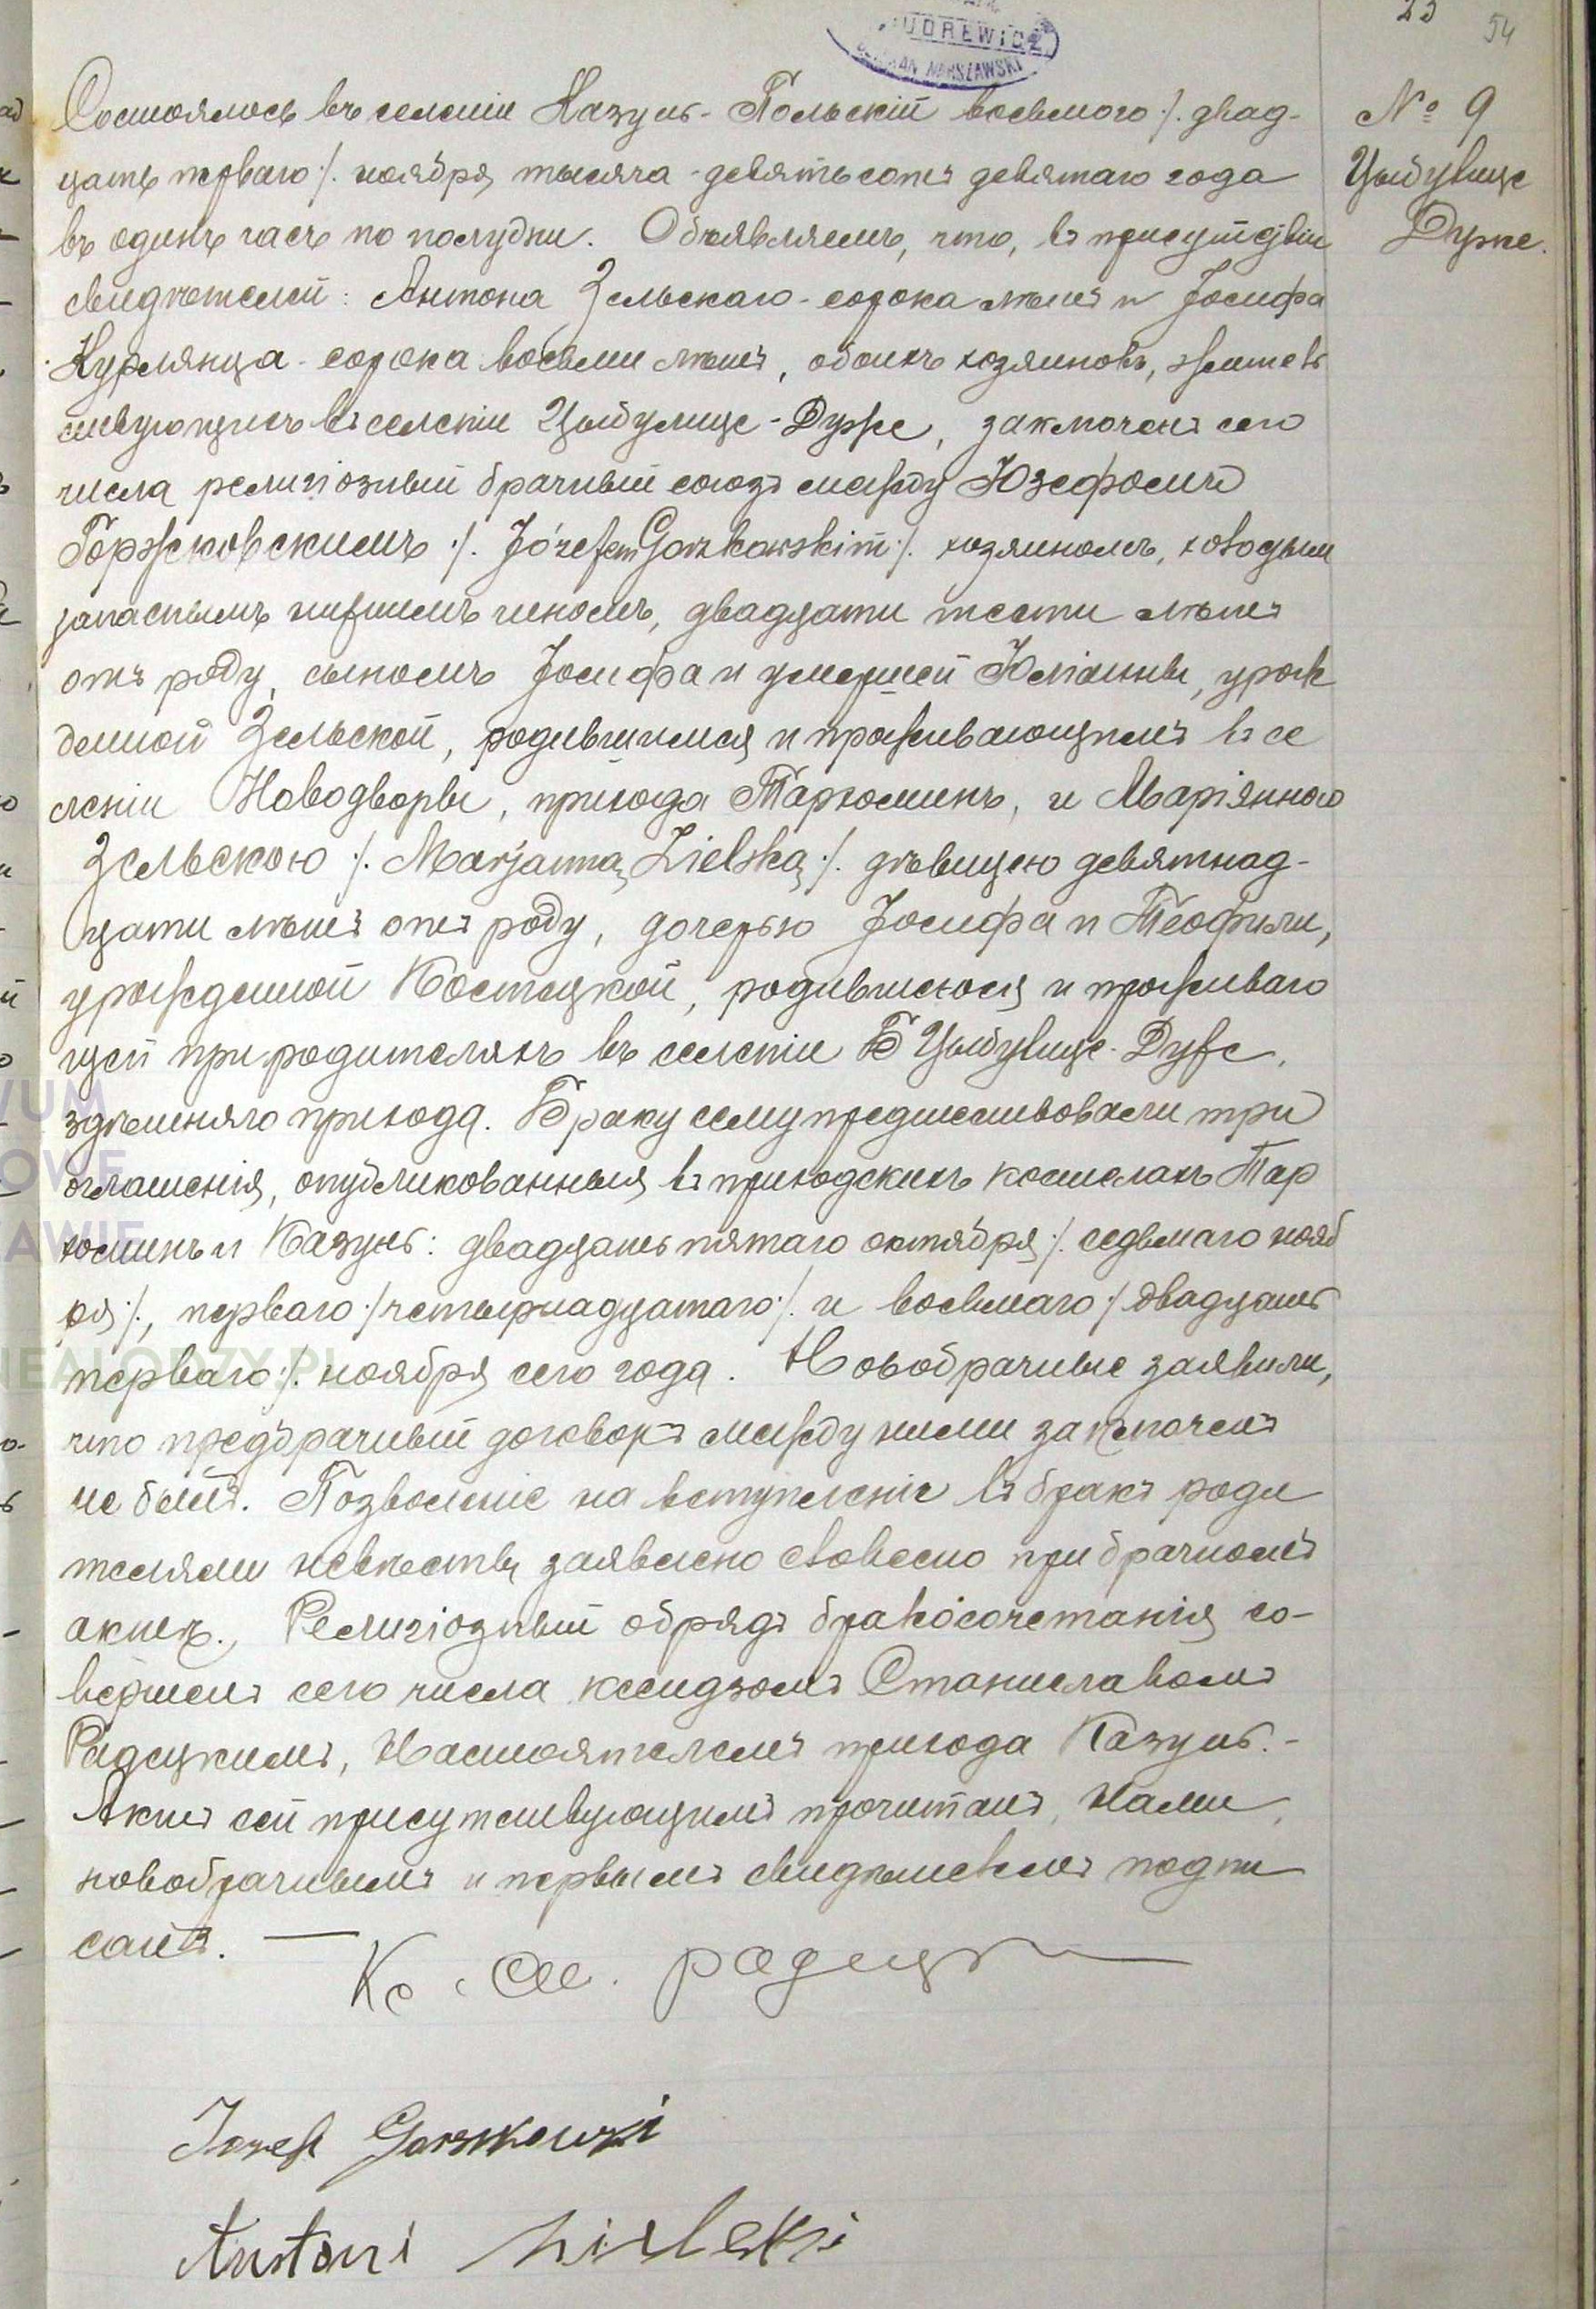 23 54
UDREWICZ
WARSZAWSKI
№ 9
Цыбулице
Дуже.
Состоялось въ селеніи Казунь-Польскій восьмого /. двад-
цать перваго ./. ноября тысяча-девятьсотъ девятаго года
въ одинъ часъ по полудни. Объявляемъ, что, въ присутствіи
свидѣтелей: Антона Зельскаго-сорока лѣтъ и Іосифа
Курлянца-сорока восьми лѣтъ, обоихъ хозяиновъ, жительс
ствующихъ въ селеніи Цыбулице-Дуже, заключенъ сего
числа религіозный брачный союзъ между Юзефомъ
Горжковскимъ ./. Józefem Gorzkowskim ./. хозяиномъ, холодымъ
запаснымъ нижнимъ чиномъ, двадцати шести лѣтъ
отъ роду, сыномъ Іосифа и умершей Юліанны, урож
денной Зельской, родившимся и проживающимъ въ се
леніи Новодворы, прихода Тархоминъ, и Маріянною
Зельскою ./. Marjanną Zielską ./. дѣвицею девятнад-
цати лѣтъ отъ роду, дочерью Іосифа и Теофили,
урожденной Костецкой, родившеюся и проживаю
щей при родителяхъ въ селеніи Цыбулице-Дуже,
здѣшняго прихода. Браку сему предшествовали три
оглашенія, опубликованныя въ приходскихъ костелахъ Тар
хоминъ и Казунь: двадцать пятаго октября ./. седьмаго нояб
ря ./., перваго ./ четырнадцатаго ./. и восьмаго ./ двадцать
перваго ./. ноября сего года. Новобрачные заявили,
что предбрачный договоръ между ними заключенъ
не былъ. Позволеніе на вступленіе въ бракъ роди
телями невѣсты заявлено словесно при брачномъ
актѣ. Религіозный обрядъ бракосочетанія со-
вершенъ сего числа ксендзомъ Станиславомъ
Радецкимъ, Настоятелемъ прихода Казунь.-
Актъ сей присутствующимъ прочитанъ, Нами,
новобрачнымъ и первымъ свидѣтелемъ подпи
санъ. —
Кс. Ст. Радецкі
Jozef Gorzkowski
Antoni Zielski